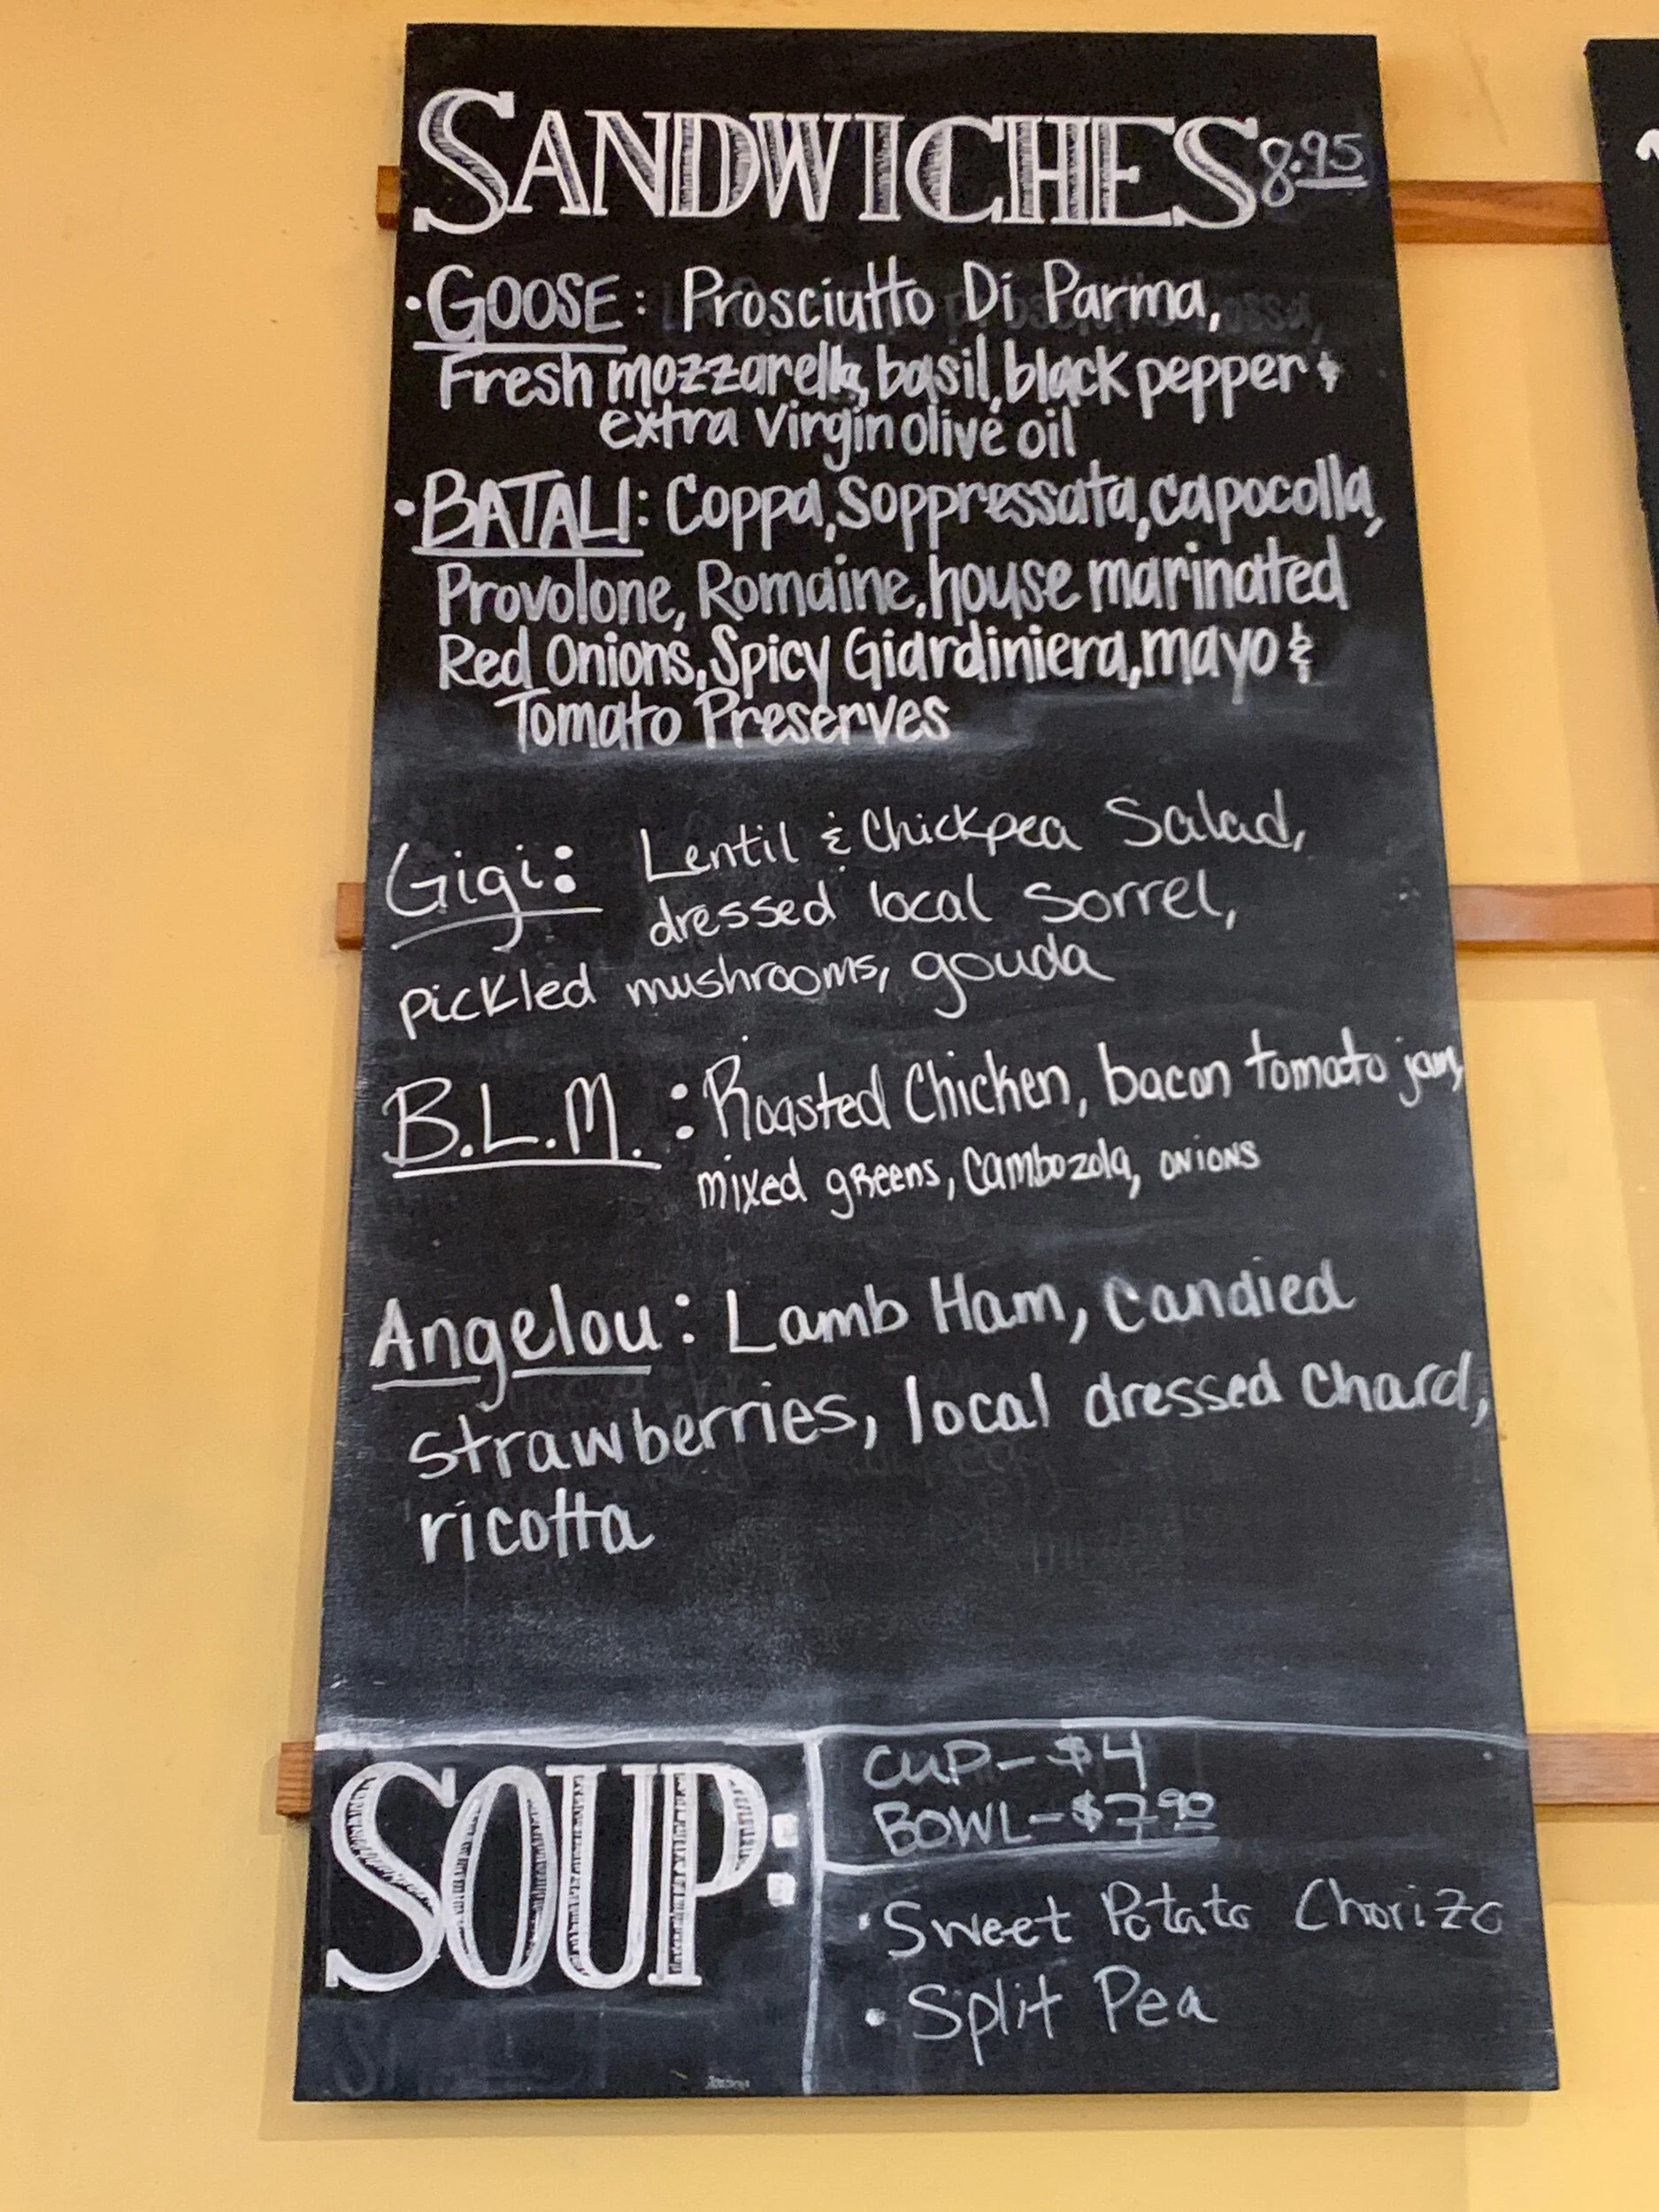 SANDWICHES 8.95
• GOOSE: Prosciutto Di Parma,
Fresh mozzarella, basil, black pepper &
extra virgin olive oil
• BATALI: Coppa, Soppressata, capocolla,
Provolone, Romaine, house marinated
Red Onions, Spicy Giardiniera, mayo &
Tomato Preserves
Gigi: Lentil & Chickpea Salad,
dressed local Sorrel,
pickled mushrooms, gouda
B.L.M.: Roasted Chicken, bacon tomato jam,
mixed greens, Cambozola, onions
Angelou: Lamb Ham, Candied
strawberries, local dressed Chard,
ricotta
SOUP:
CUP - $4
BOWL - $7.90
• Sweet Potato Chorizo
• Split Pea